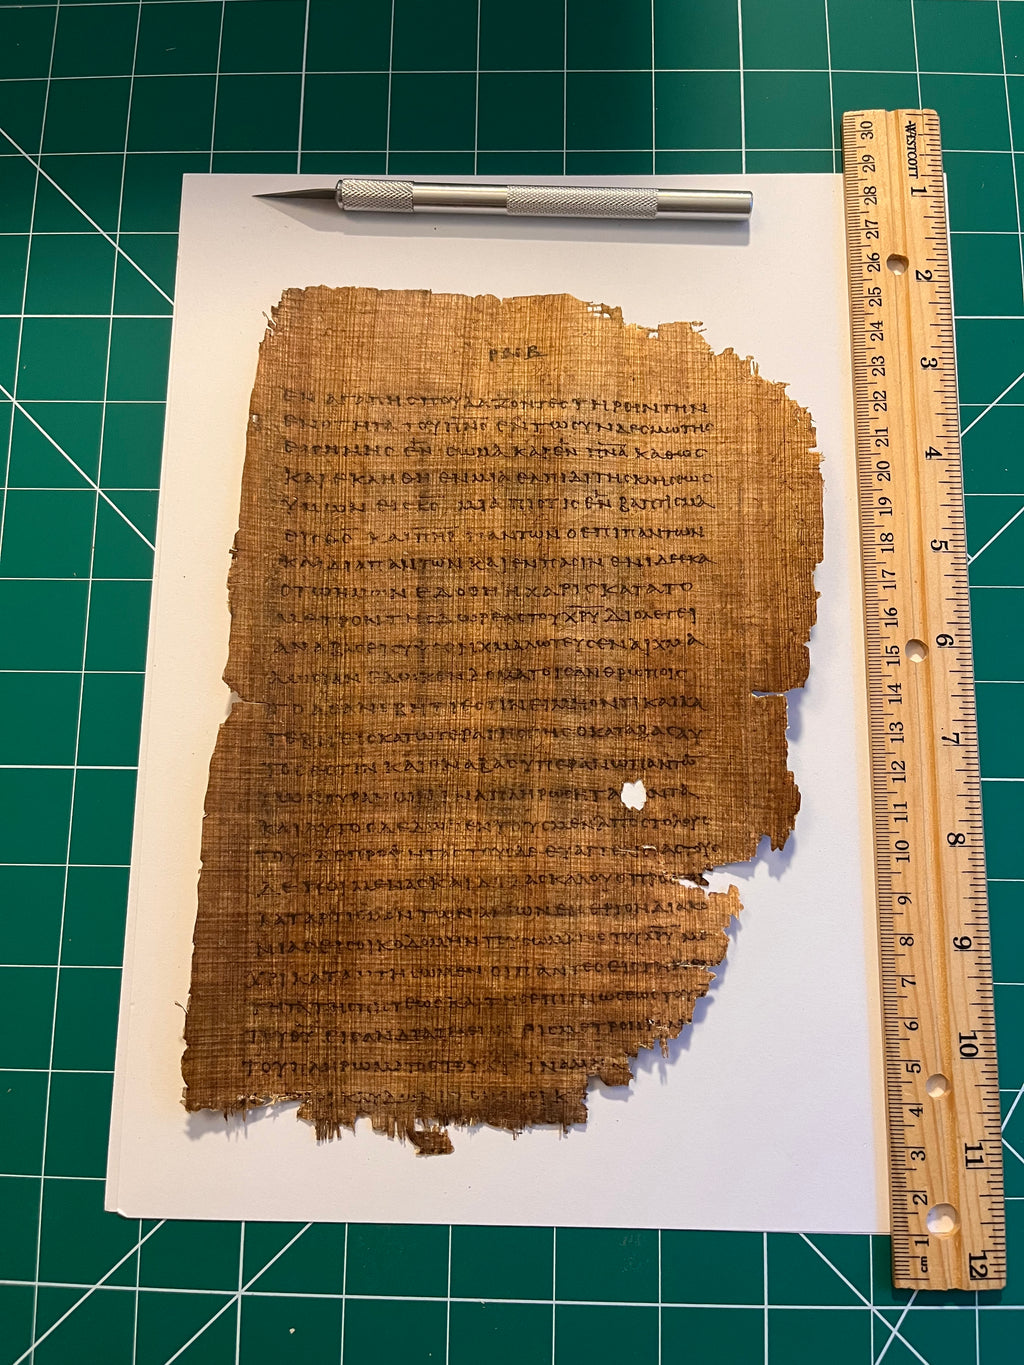 ΡΝΒ
ΕΝ ΑΓΑΠΗ ϹΠΟΥΔΑΖΟΝΤΕϹ ΤΗΡΕΙΝ ΤΗΝ
ΕΝΟΤΗΤΑ ΤΟΥ Π̅Ν̅Ϲ̅ ΕΝ ΤΩ ϹΥΝΔΕϹΜΩ ΤΗϹ
ΕΙΡΗΝΗϹ ΕΝ ϹΩΜΑ ΚΑΙ ΕΝ Π̅Ν̅Α̅ ΚΑΘΩϹ
ΚΑΙ ΕΚΛΗΘΗ ΕΝ ΜΙΑ ΕΛΠΙΔΙ ΤΗϹ ΚΛΗϹΕΩϹ
ΥΜΩΝ ΕΙϹ Κ̅Ϲ̅ ΜΙΑ ΠΙϹΤΙϹ ΕΝ ΒΑΠΤΙϹΜΑ
ΕΙϹ Θ̅Ϲ̅ ΚΑΙ Π̅Η̅Ρ̅ ΠΑΝΤΩΝ Ο ΕΠΙ ΠΑΝΤΩΝ
ΚΑΙ ΔΙΑ ΠΑΝΤΩΝ ΚΑΙ ΕΝ ΠΑϹΙΝ ΕΝΙ ΔΕ ΕΚΑ
ϹΤΩ ΗΜΩΝ ΕΔΟΘΗ Η ΧΑΡΙϹ ΚΑΤΑ ΤΟ
ΜΕΤΡΟΝ ΤΗϹ ΔΩΡΕΑϹ ΤΟΥ Χ̅Ρ̅Υ̅ ΔΙΟ ΛΕΓΕΙ
ΑΝΑΒΑϹ ΕΙϹ ΥΨΟϹ ΗΧΜΑΛΩΤΕΥϹΕΝ ΑΙΧΜΑ
ΛΩϹΙΑΝ ΕΔΩΚΕΝ ΔΟΜΑΤΑ ΤΟΙϹ ΑΝΘΡΩΠΟΙϹ
ΤΟ ΔΕ ΑΝΕΒΗ ΤΙ ΕϹΤΙΝ ΕΙ ΜΗ ΟΤΙ ΚΑΙ ΚΑ
ΤΕΒΗ ΕΙϹ ΚΑΤΩΤΕΡΑ ΤΗϹ ΓΗϹ Ο ΚΑΤΑΒΑϹ ΑΥ
ΤΟϹ ΕϹΤΙΝ ΚΑΙ Ο ΑΝΑΒΑϹ ΥΠΕΡΑΝΩ ΠΑΝΤΩ
ΤΩΝ ΟΥΡΑΝΩΝ ΙΝΑ ΠΛΗΡΩϹΗ ΤΑ
ΚΑΙ ΑΥΤΟϹ ΜΕΝ ΑΠΟϹΤΟΛΟΥϹ
ΤΟΥϹ ΔΕ ΠΡΟΦΗΤΑϹ ΤΟΥϹ ΔΕ ΕΥΑΓΓΕΛΙϹΤΑϹ ΤΟΥϹ
ΔΕ ΠΟΙΜΕΝΑϹ ΚΑΙ ΔΙΔΑϹΚΑΛΟΥϹ
ΚΑΤΑΡΤΙϹΜΟΝ ΤΩΝ ΑΓΙΩΝ ΕΙϹ ΕΡΓΟΝ ΔΙΑΚΟ
ΝΙΑϹ ΕΙϹ ΟΙΚΟΔΟΜΗΝ ΤΟΥ ϹΩΜΑΤΟϹ ΤΟΥ Χ̅Ρ̅Υ̅ ΜΕ
ΧΡΙ ΚΑΤΑΝΤΗϹΩΜΕΝ ΟΙ ΠΑΝΤΕϹ ΕΙϹ ΤΗΝ
ΤΗΤΑ ΤΗϹ ΠΙϹΤΕΩϹ ΚΑΙ ΤΗϹ ΕΠΙΓΝΩϹΕΩϹ ΤΟΥ
ΕΙϹ ΑΝΔΡΑ ΤΕΛΕΙΟΝ ΕΙϹ ΜΕΤΡΟΝ
ΤΟΥ ΠΛΗΡΩΜΑΤΟϹ ΤΟΥ ΙΝΑ
WESTCOTT
1 2 3 4 5 6 7 8 9 10 11 12
30 29 28 27 26 25 24 23 22 21 20 19 18 17 16 15 14 13 12 11 10 9 8 7 6 5 4 3 2 1 cm